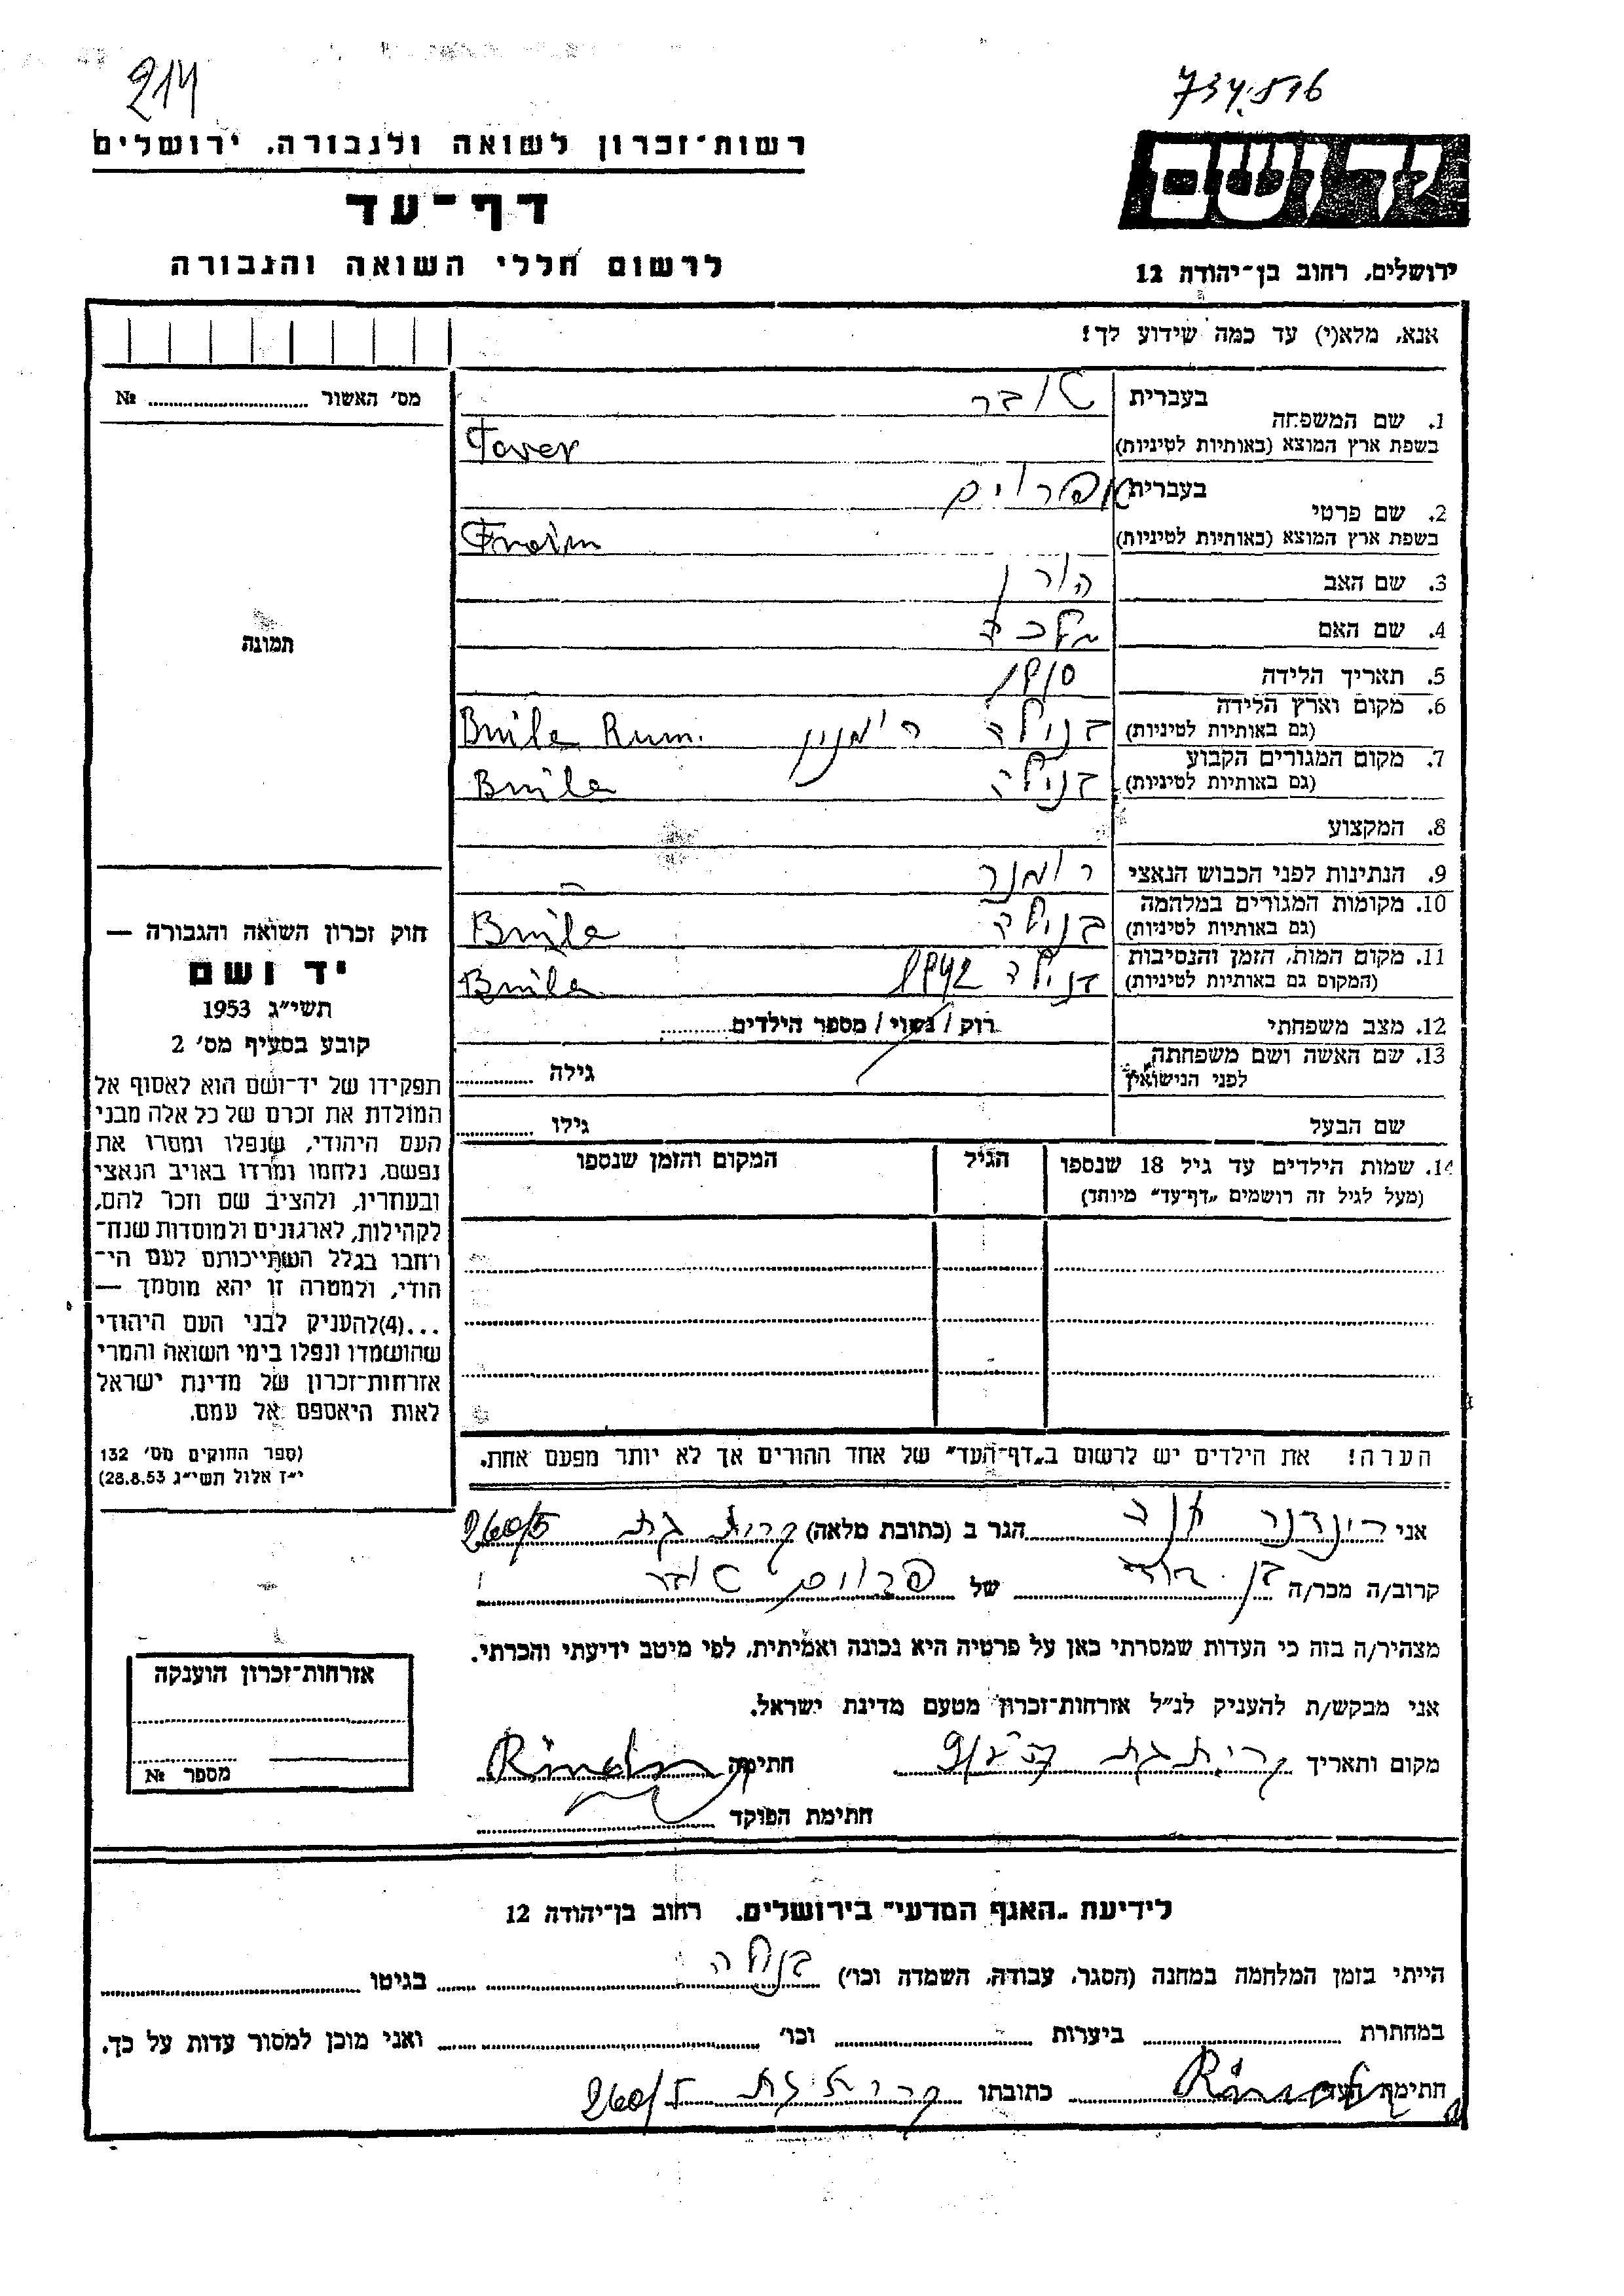 214
734516
רשות־זכרון לשואה ולגבורה. ירושלים
יד ושם
דף־עד
לרשום חללי השואה והגבורה
ירושלים, רחוב בן־יהודה 12
אנא, מלא(י) עד כמה שידוע לך!
מס׳ האשור №
תמונה
1. שם המשפחה
בעברית טובר
בשפת ארץ המוצא (באותיות לטיניות) Tover
2. שם פרטי
בעברית אפרוים
בשפת ארץ המוצא (באותיות לטיניות)
3. שם האב
4. שם האם מלכה
5. תאריך הלידה 1910
6. מקום וארץ הלידה
(גם באותיות לטיניות) Rum.
7. מקום המגורים הקבוע
(גם באותיות לטיניות)
8. המקצוע
9. הנתינות לפני הכבוש הנאצי
10. מקומות המגורים במלחמה
(גם באותיות לטיניות)
11. מקום המות, הזמן והנסיבות 1942
(המקום גם באותיות לטיניות)
12. מצב משפחתי רוק / נשוי / מספר הילדים
13. שם האשה ושם משפחתה
לפני הנישואין גילה
שם הבעל גילו
14. שמות הילדים עד גיל 18 שנספו הגיל המקום והזמן שנספו
(מעל לגיל זה רושמים „דף־עד״ מיוחד)
הערה! את הילדים יש לרשום ב„דף־העד״ של אחד ההורים אך לא יותר מפעם אחת.
חוק זכרון השואה והגבורה —
יד ושם
תשי״ג 1953
קובע בסעיף מס׳ 2
תפקידו של יד־ושם הוא לאסוף אל
המולדת את זכרם של כל אלה מבני
העם היהודי, שנפלו ומסרו את
נפשם, נלחמו ומרדו באויב הנאצי
ובעוזריו, ולהציב שם וזכר להם,
לקהילות, לארגונים ולמוסדות שנח־
רחבו בגלל השתייכותם לעם הי־
הודי, ולמטרה זו יהא מוסמך —
...(4)להעניק לבני העם היהודי
שהושמדו ונפלו בימי השואה והמרי
אזרחות־זכרון של מדינת ישראל
לאות היאספם אל עמם.
(ספר החוקים מס׳ 132
י״ז אלול תשי״ג 28.8.53)
אני הגר ב (כתובת מלאה) קרית גת 260/5
קרוב/ה מכר/ה בן דוד של פרוים טובר
מצהיר/ה בזה כי העדות שמסרתי כאן על פרטיה היא נכונה ואמיתית, לפי מיטב ידיעתי והכרתי.
אני מבקש/ת להעניק לנ״ל אזרחות־זכרון מטעם מדינת ישראל.
מקום ותאריך קרית גת חתימה
חתימת הפוקד
אזרחות־זכרון הוענקה
מספר №
לידיעת „האגף המדעי״ בירושלים. רחוב בן־יהודה 12
הייתי בזמן המלחמה במחנה (הסגר, עבודה, השמדה וכו׳) בגיטו
במחתרת ביערות וכו׳ ואני מוכן למסור עדות על כך.
חתימת העד כתובתו קרית גת 260/5